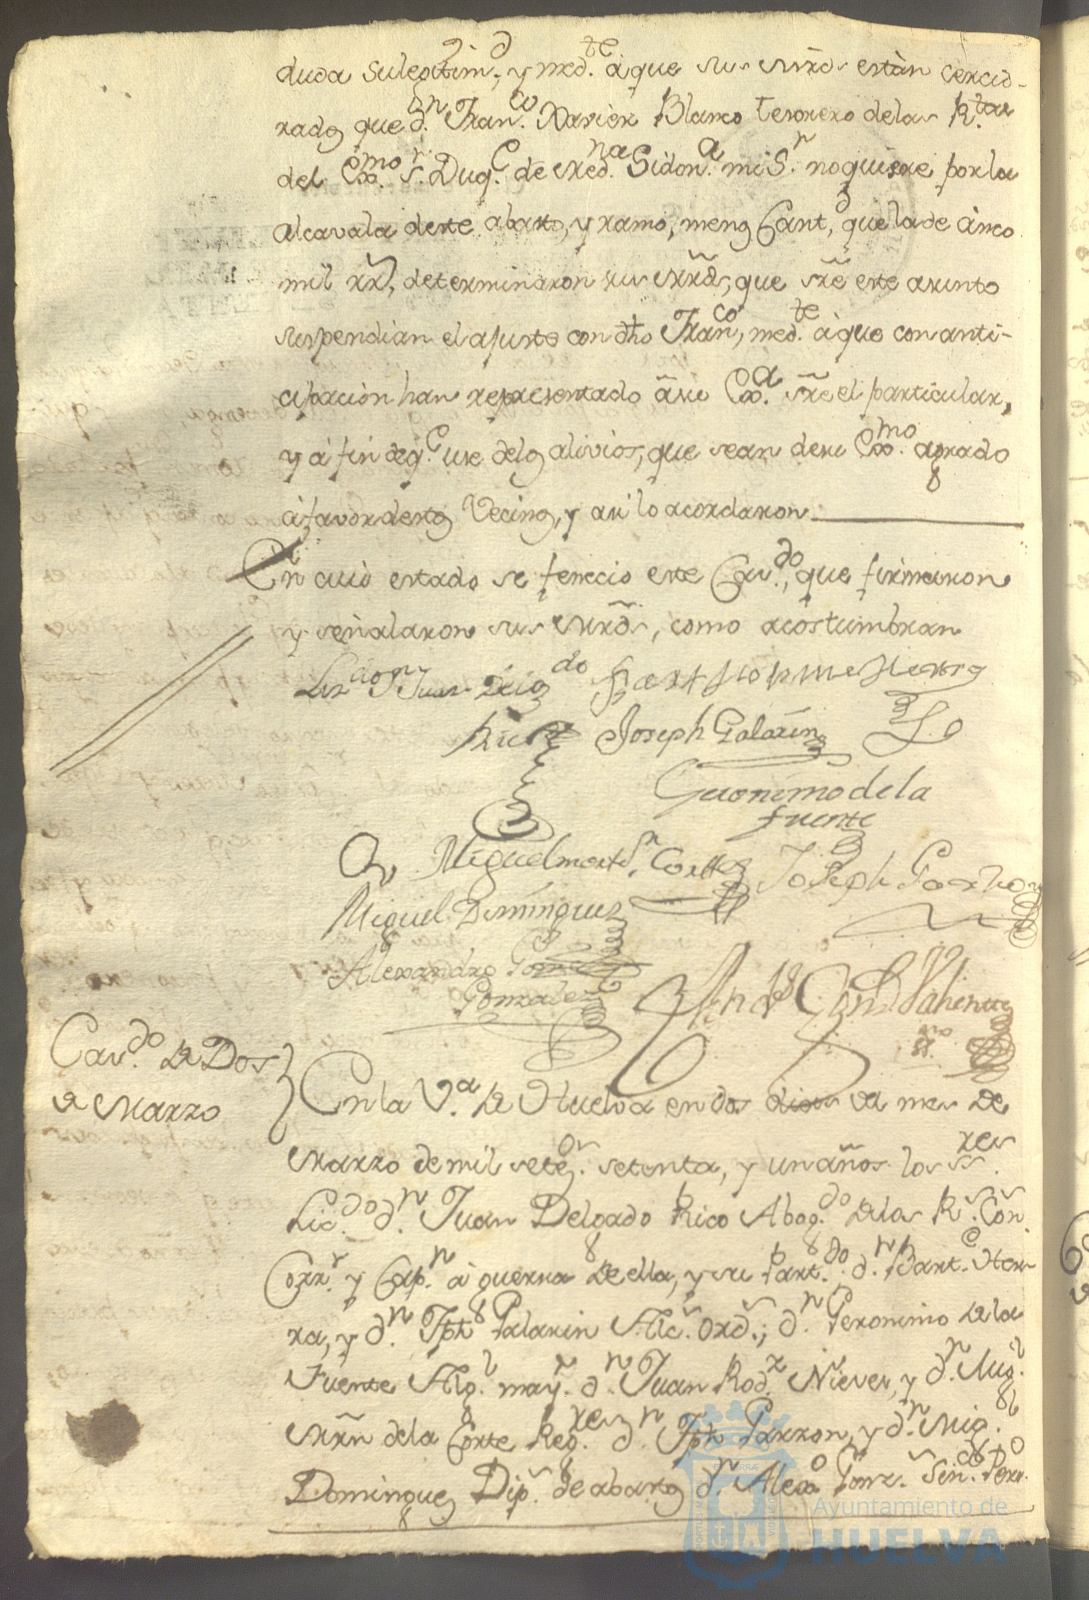 duda su legitim.d, y med.te à que sus mrds estàn cercio-
rados que d.n Fran.co Xavier Blanco tesorero delas R.tas
del Exmo. S.r Duq.e de Med.na Sidon.a mi S.r no quiere por la
Alcavala deste abasto, y ramo, menos Cant.d, que la de cinco
mil rr.s, determinaron sus mrrds, que sre este asunto
suspendian el ajuste con dho Fran.co, med.te à que con anti-
cipacion han representado à su Exa. sre el particular,
y à fin de q.e use delos alivios, que sean de su Exmo. agrado
à favor destos Vecinos, y asi lo acordaron
En cuio estado se fenecio este Cav.do, que firmaron
y señalaron sus mrds, como acostumbran
Liz.do D.n Juan Delg.do Bartholome Herra
Rico Joseph Galarin
Geronimo de la
fuente
Miguel mart.n Cortes Joseph Garzon
Miguel Dominguez
Alexandro Gomez
Gonzalez
And.s Gom.z Valiente
Cav.do de Dos
de Marzo
En la V.a de Huelva en dos dias del mes de
Marzo de mil sete.os setenta, y un años los ss.res
Lic.do d.n Juan Delgado Rico Abog.do delas R.s Con.s
Corr.r y Cap.n à guerra de ella, y su Part.do d.n Bart.e Her-
ra, y d.n Jph Galarin Alc.s ord.s; d.n Geronimo de la
Fuente Alg.l may.r d.n Juan Rod.z Nieves, y d.n Mig.l
Mrñ dela Corte Reg.res d.n Jph Garzon, y d.n Mig.l
Dominguez Dip.s de abastos d.n Alexo Gonz.s Sin.co Pero.
Ayuntamiento de
HUELVA